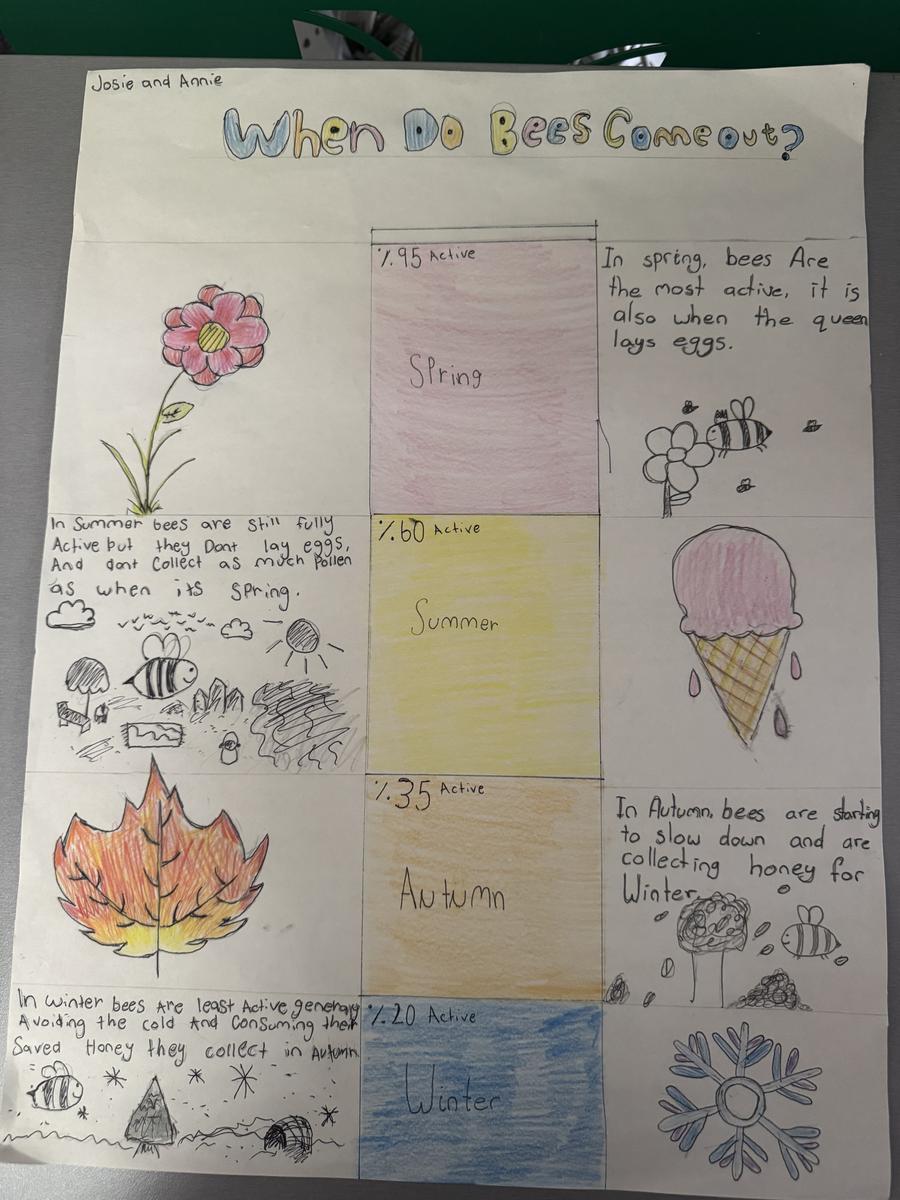 Josie and Annie
When Do Bees Come out?
%95 Active
Spring
In spring, bees Are
the most active, it is
also when the queen
lays eggs.
In Summer bees are still fully
Active but they Dont lay eggs,
And dont Collect as much Pollen
as when its Spring.
%60 Active
Summer
%35 Active
Autumn
In Autumn, bees are starting
to slow down and are
collecting honey for
Winter.
In winter bees Are least Active generally
Avoiding the cold And Consuming their
Saved Honey they collect in Autumn.
%20 Active
Winter